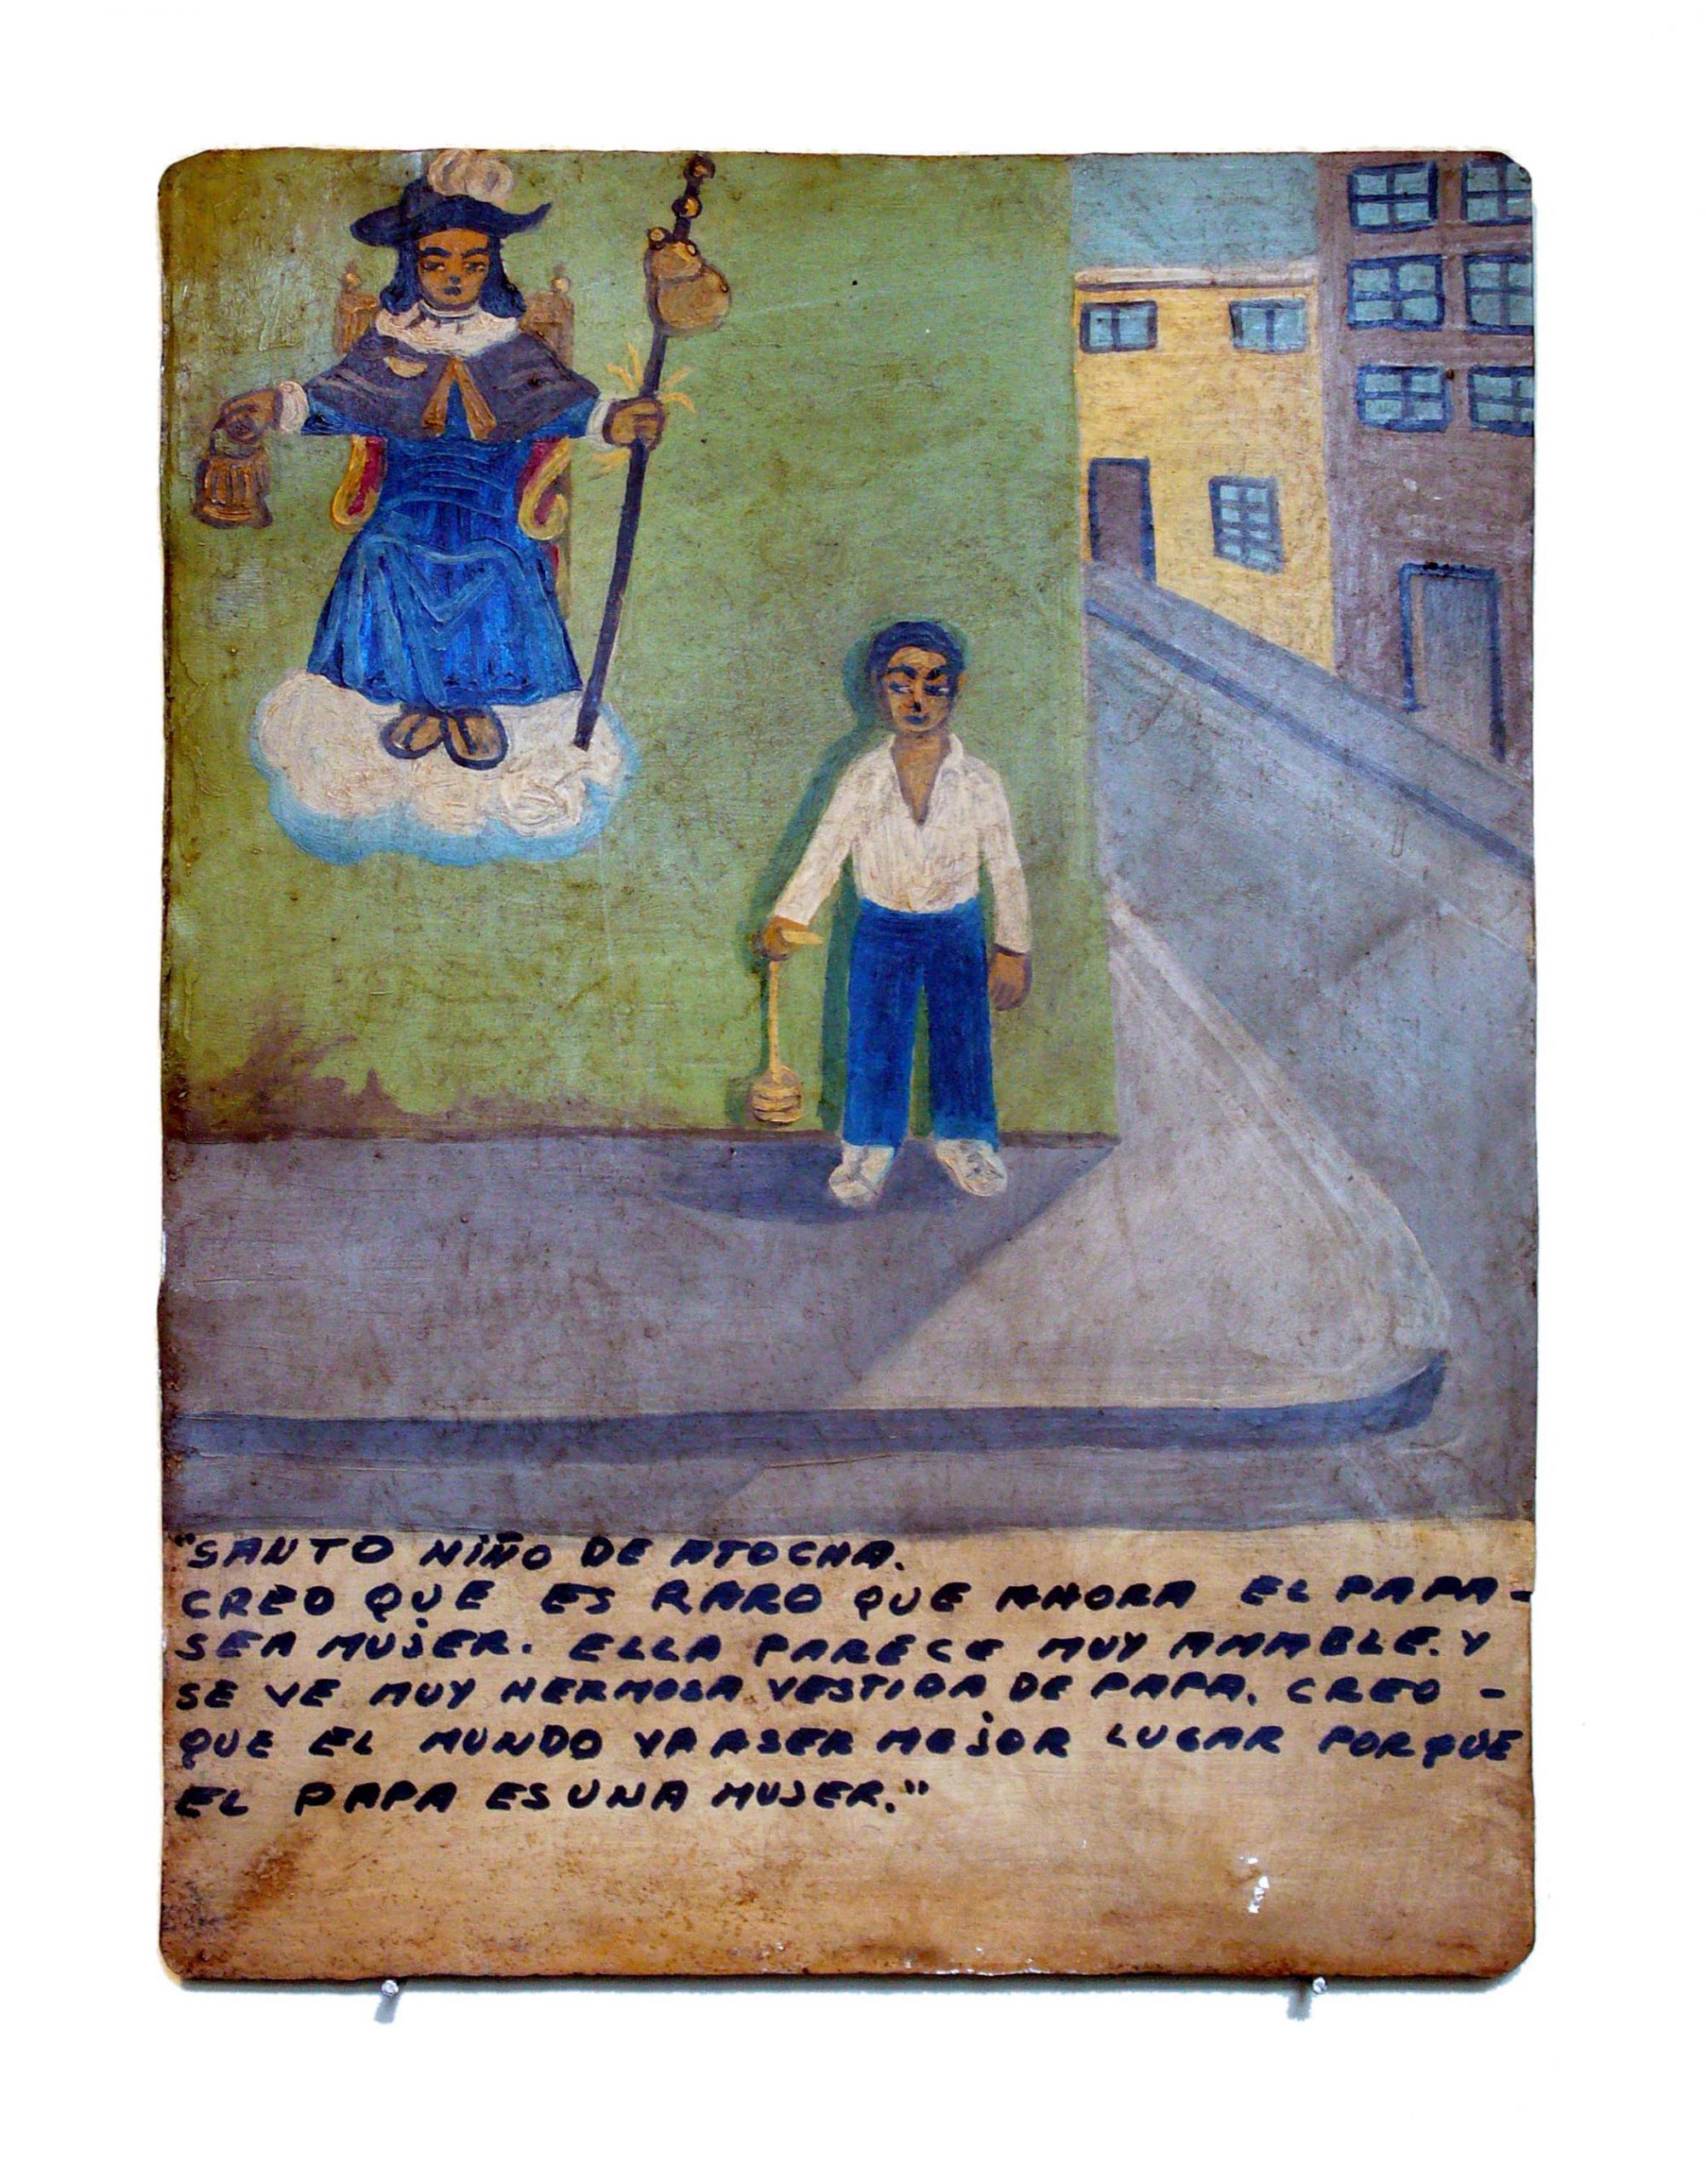 "SANTO NIÑO DE ATOCHA.
CREO QUE ES RARO QUE AHORA EL PAPA-
SEA MUJER. ELLA PARECE MUY AMABLE. Y
SE VE MUY HERMOSA VESTIDA DE PAPA. CREO -
QUE EL MUNDO VA ASER MEJOR LUGAR PORQUE
EL PAPA ES UNA MUJER."